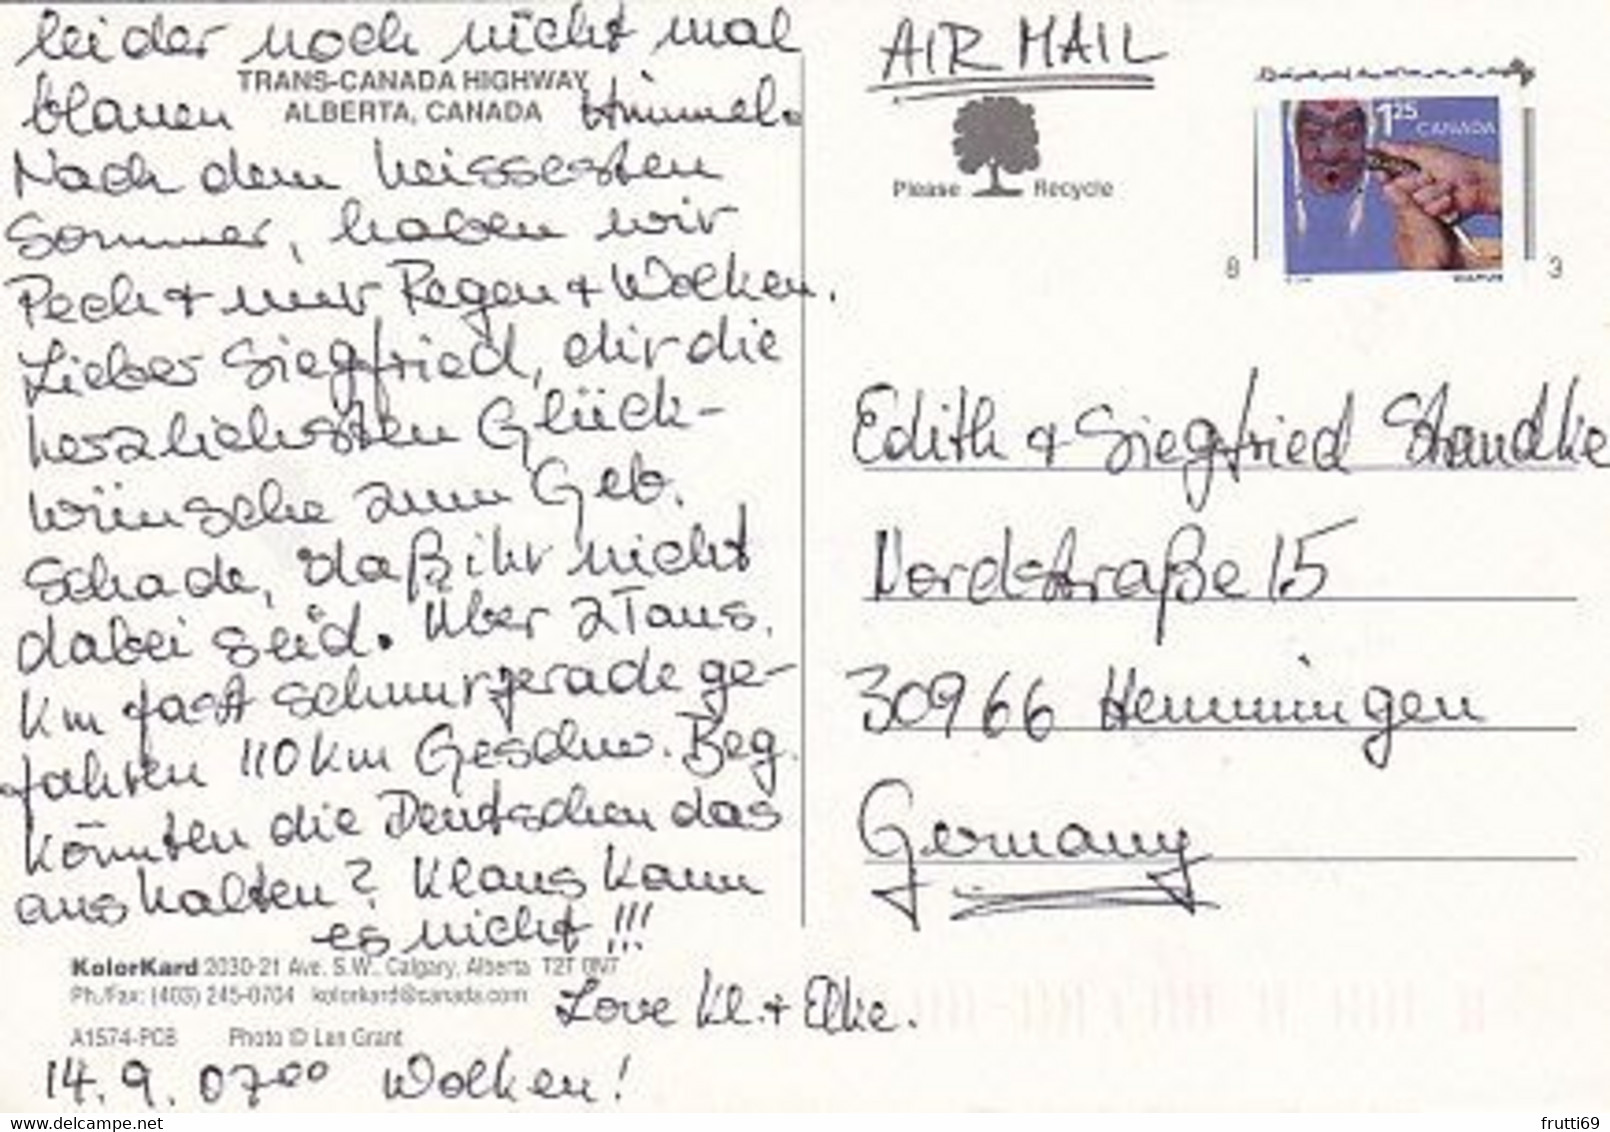 leider noch nicht mal
TRANS-CANADA HIGHWAY
blauen ALBERTA, CANADA Himmel.
Nach dem heissesten
Sommer, haben wir
Pech + nur Regen + Wolken.
Lieber Siegfried, dir die
herzlichsten Glück-
wünsche zum Geb.
Schade, daß ihr nicht
dabei seid. Über 2 Taus.
km fast schnurgerade ge-
fahren 110 km Geschw. Beg.
Könnten die Deutschen das
aushalten? Klaus kann
es nicht!!!
KolorKard 2030-21 Ave. S.W. Calgary, Alberta T2T 0N7
Ph./Fax: (403) 245-0704 kolorkard@canada.com
Love Kl. + Elke.
A1574-PCB Photo © Len Grant
14.9. 07⁰⁰ Wolken!
AIR MAIL
Please Recycle
1²⁵ CANADA
8 3
Edith + Siegfried Standke
Nordstraße 15
30966 Hemmingen
Germany
frutti69